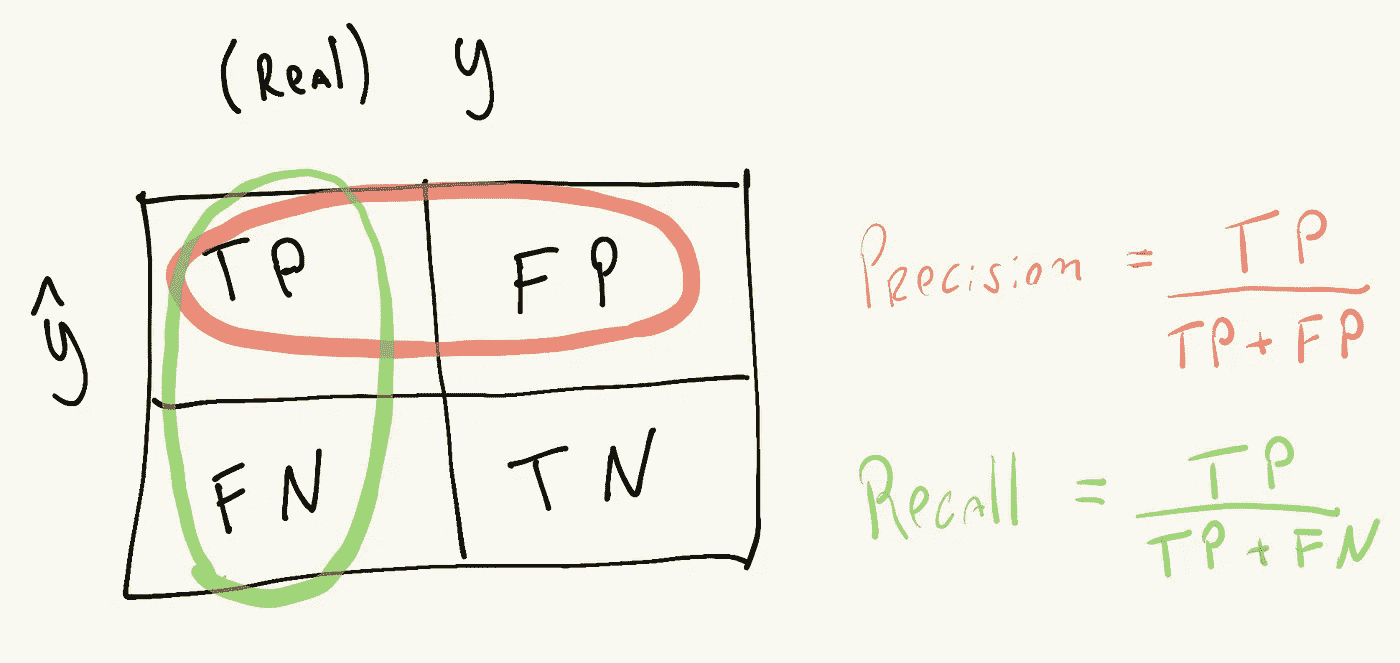 (Real) y
ŷ
TP FP
FN TN
Precision = TP
TP + FP
Recall = TP
TP + FN